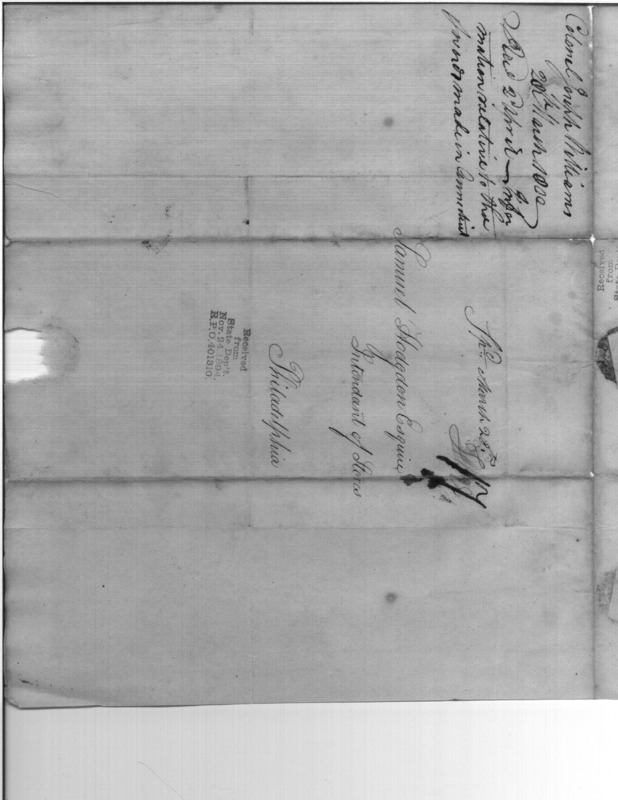 Colonel Joseph Williams
28th March 1800
Recd 2d April — Infor
mation relative to the
powder made in Connecticut
March 28th
Samuel Hodgdon Esquire
Intendant of Stores
Philadelphia
Received
from
State Dep't.
Nov. 24 1894
R.P.O. 401310.
Received
from